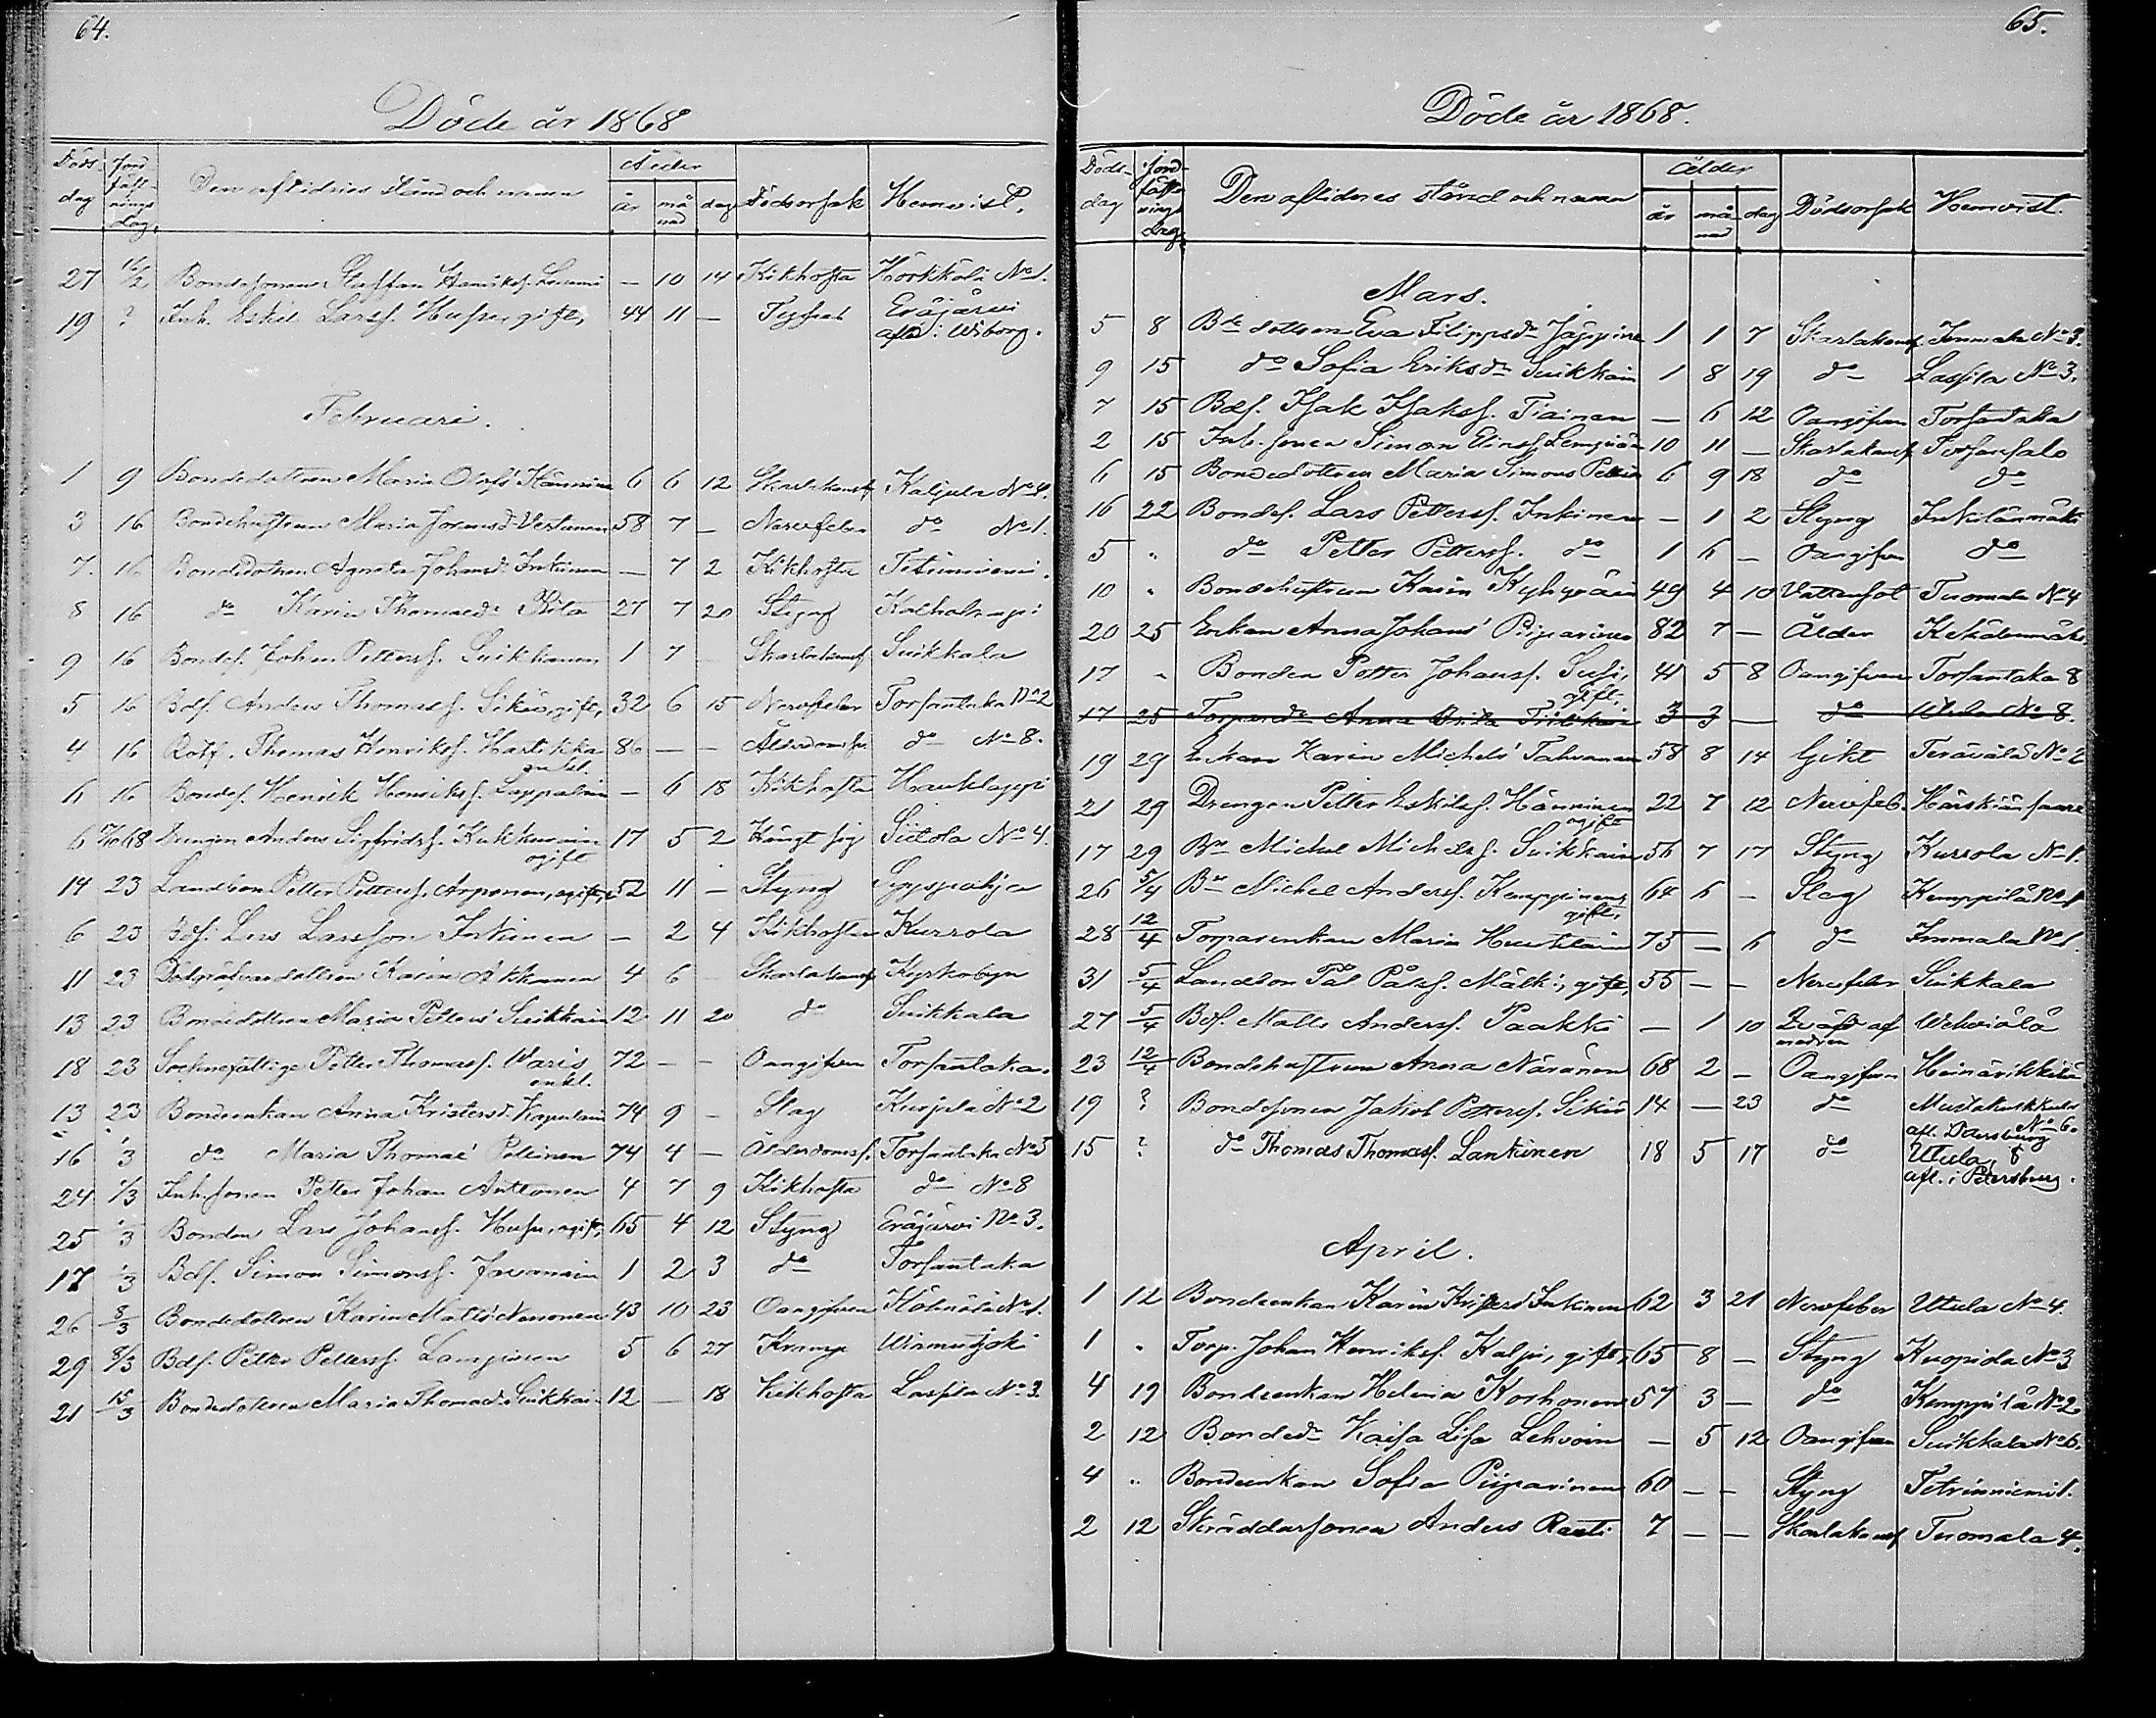 64.
Döde år 1868
Döds-dag Jordfästnings dag Den aflidnes stånd och namn Ålder år månad dag Dödsorsak Hemvist.
27 16/2 Bondesonen Staffan Henriksf. Lemmi — 10 14 Kikhosta Kärkkälä No 1.
19 ? Inh. Eskil Larsf. Husu, gift, 44 11 — Eräjärvi
afled i Wiborg.
Februari.
1 9 Bondedottren Maria Olofsd Hänninen 6 6 12 Skarlakansf Kaljula No 4.
3 16 Bondehustrun Maria Vertanen 58 7 — Nervfeber do No 1.
7. 16 Bondedottren Agneta Johansd. Inkinen — 7 2 Kikhosta Tetriniemi.
8 16 do Karin Thomaed. 27 7 20 Styng
9 16 Bondes. Johan Pettersf. Suikkanen 1 7 — Skarlakansf Suikkala
5 16 Bdf. Anders Thomasf. Sikiö, gift, 32 6 15 Nervfeber Torsantaka No 2
4 16 Rotf. Thomas Henriksf. Hartikka 86 — — Ålderdomsf. do No 8.
enkl.
6 16 Bondes. Henrik Henriksf. Lappalain — 6 18 Kikhosta Hauklappi
6 Drengen Anders Sigfridsf. Kukkurainen 17 5 2 Hängt sig Siitola No 4.
ogift
14 23 Landbon Petter Pettersf. Arponen, 52 11 — Styng Syyspohja
6 23 Bdf. Lars Larsson Inkinen — 2 4 Kikhosta Kurrola
11 23 Karin Akkanen 4 6 Skarlakansf Kyrkobyn
13 23 Bondedottren Maria Petters' Suikkain 12 11 20 do Suikkala
18 23 Socknefattige Petter Thomasf. Waris 72 — — Oangifven Torsantaka.
enkl.
13 23 Bondeenkan Anna Kristersd. 74 9 — Slag Kuopila No 2
16 1/3 do Maria Thomae' Pellinen 74 4 — Ålderdomsf. Torsantaka No 3
24 1/3 Inh. sonen Petter Johan Anttonen 4 7 9 Kikhosta do No 8
25 1/3 Bonden Lars Johansf. Husu, 65 4 12 Styng Eräjärvi No 3.
17 1/3 Bdf. Simon Simonsf. Javanain 1 2 3 do Torsantaka
26 8/3 Bondedottren Karin Matts' Neuvonen 43 10 23 Oangifven No 1.
29 8/3 Bdf. Petter Pettersf. Lampinen 5 6 27 Kramp Wirmutjoki
21 15/3 Bondedottren Maria Thomaed. Suikkai 12 — 18 Kikhosta Lassila No 3.
65.
Döde år 1868.
Döds-dag Jordfästnings dag Den aflidnes stånd och namn Ålder år månad dag Dödsorsak Hemvist.
Mars.
5 8 Bde dottren Eva Filippsdr Jäppinen 1 1 7 Skarlakansf. Immala No 3.
9 15 do Sofia Eriksdr Suikkain 1 8 19 do Lassila No 3.
7 15 Bdf. Isak Isaksf. Tiainen — 6 12 Oangifven Torsantaka
2 15 Inh. sonen Simon Lempiäin 10 11 — Skarlakansf Torsansalo
6 15 Bondedottren Maria Simons Pellin 6 9 18 do do
16 22 Bondes. Lars Pettersf. Inkinen — 1 2 Styng Inkilänmäki
5 " do Petter Pettersf. do 1 6 — Oangifven do
10 " Bondehustrun Karin Kyhyräin 49 4 10 Vattensot Tuomala No 4
20 25 Enkan Anna Johans' Piiparinen 82 7 — Ålder Kekälenmäki
17 " Bonden Petter Johansf. Susi, 41 5 8 Oangifven Torsantaka 8
gift.
17 25 Torparedr Anna Brita 3 3 — do Utula No 8.
19 29 Enkan Karin Michels' Tahvanain 58 8 14 Gikt Teräväla No 2
21 29 Drengen Petter Eskilsf. Hänninen 22 7 12 Nervfeb. Härskiänsaari
ogift
17 29 Bn Michel Michelsf. Suikkain 56 7 17 Styng Kurrola No 1.
26 5/4 Bn Michel Andersf. Kemppinen, 64 6 — Slag Kemppilä No 1
gift,
28 12/4 Torparenkan Maria 75 — 6 do Immala No 1.
31 5/4 Landbon Pål Pålsf. Mälki, gift, 55 — — Nervfeber Suikkala
27 5/4 Bdf. Matts Andersf. Paakki — 1 10 Qväfd af Wehviälä
modren
23 12/4 Bondehustrun Anna Näränen 68 2 — Oangifven Heinärikkilä
19 ? Bondesonen Jakob Pettersf. Sikiö 14 — 23 do Mustakukkula
No 6.
15 ? do Thomas Thomasf. Lankinen 18 5 17 do afl. Petersburg
Utula, 8
afl. i Petersburg.
April.
1 12 Bondeenkan Karin Kristersd Inkinen 62 3 21 Nervfeber Utula No 4.
1 " Torp. Johan Henriksf. Kalpi, gift, 65 8 — Styng Kuopila No 3
4 19 Bondeenkan Helena Korhonen 57 3 — do Kemppilä No 2.
2 12 Bondedr Kaisa Lisa Lehvoin — 5 12 Oangifven Suikkala No 6.
4 " Bondeenkan Sofia Piiparinen 60 — — Styng Tetriniemi 1.
2 12 Skräddarsonen Anders Rasti 7 — — Skarlakansf Tuomala 4.